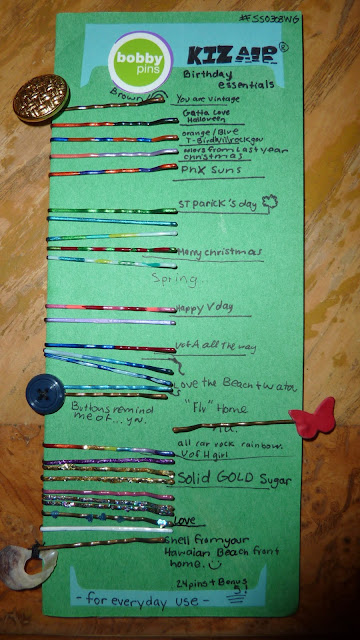 #FSS0368WG
bobby pins
KIZ AIR®
Birthday essentials
Brown
You are vintage
Gatta Love
Halloween
orange/Blue
T-Birds
colors from Last year
christmas
PhX Suns
ST parick's day
Merry christmas
Spring...
Happy V day
U of A all the way
Love the Beach + wata
Buttons remind
me of... yn.
"Fly" Home
all car rock rainbow.
U of H girl
Solid GOLD Sugar
Love
Shell from your
Hawaiian Beach front
home. :)
24 pins + Bonus
5!
- for everyday use -